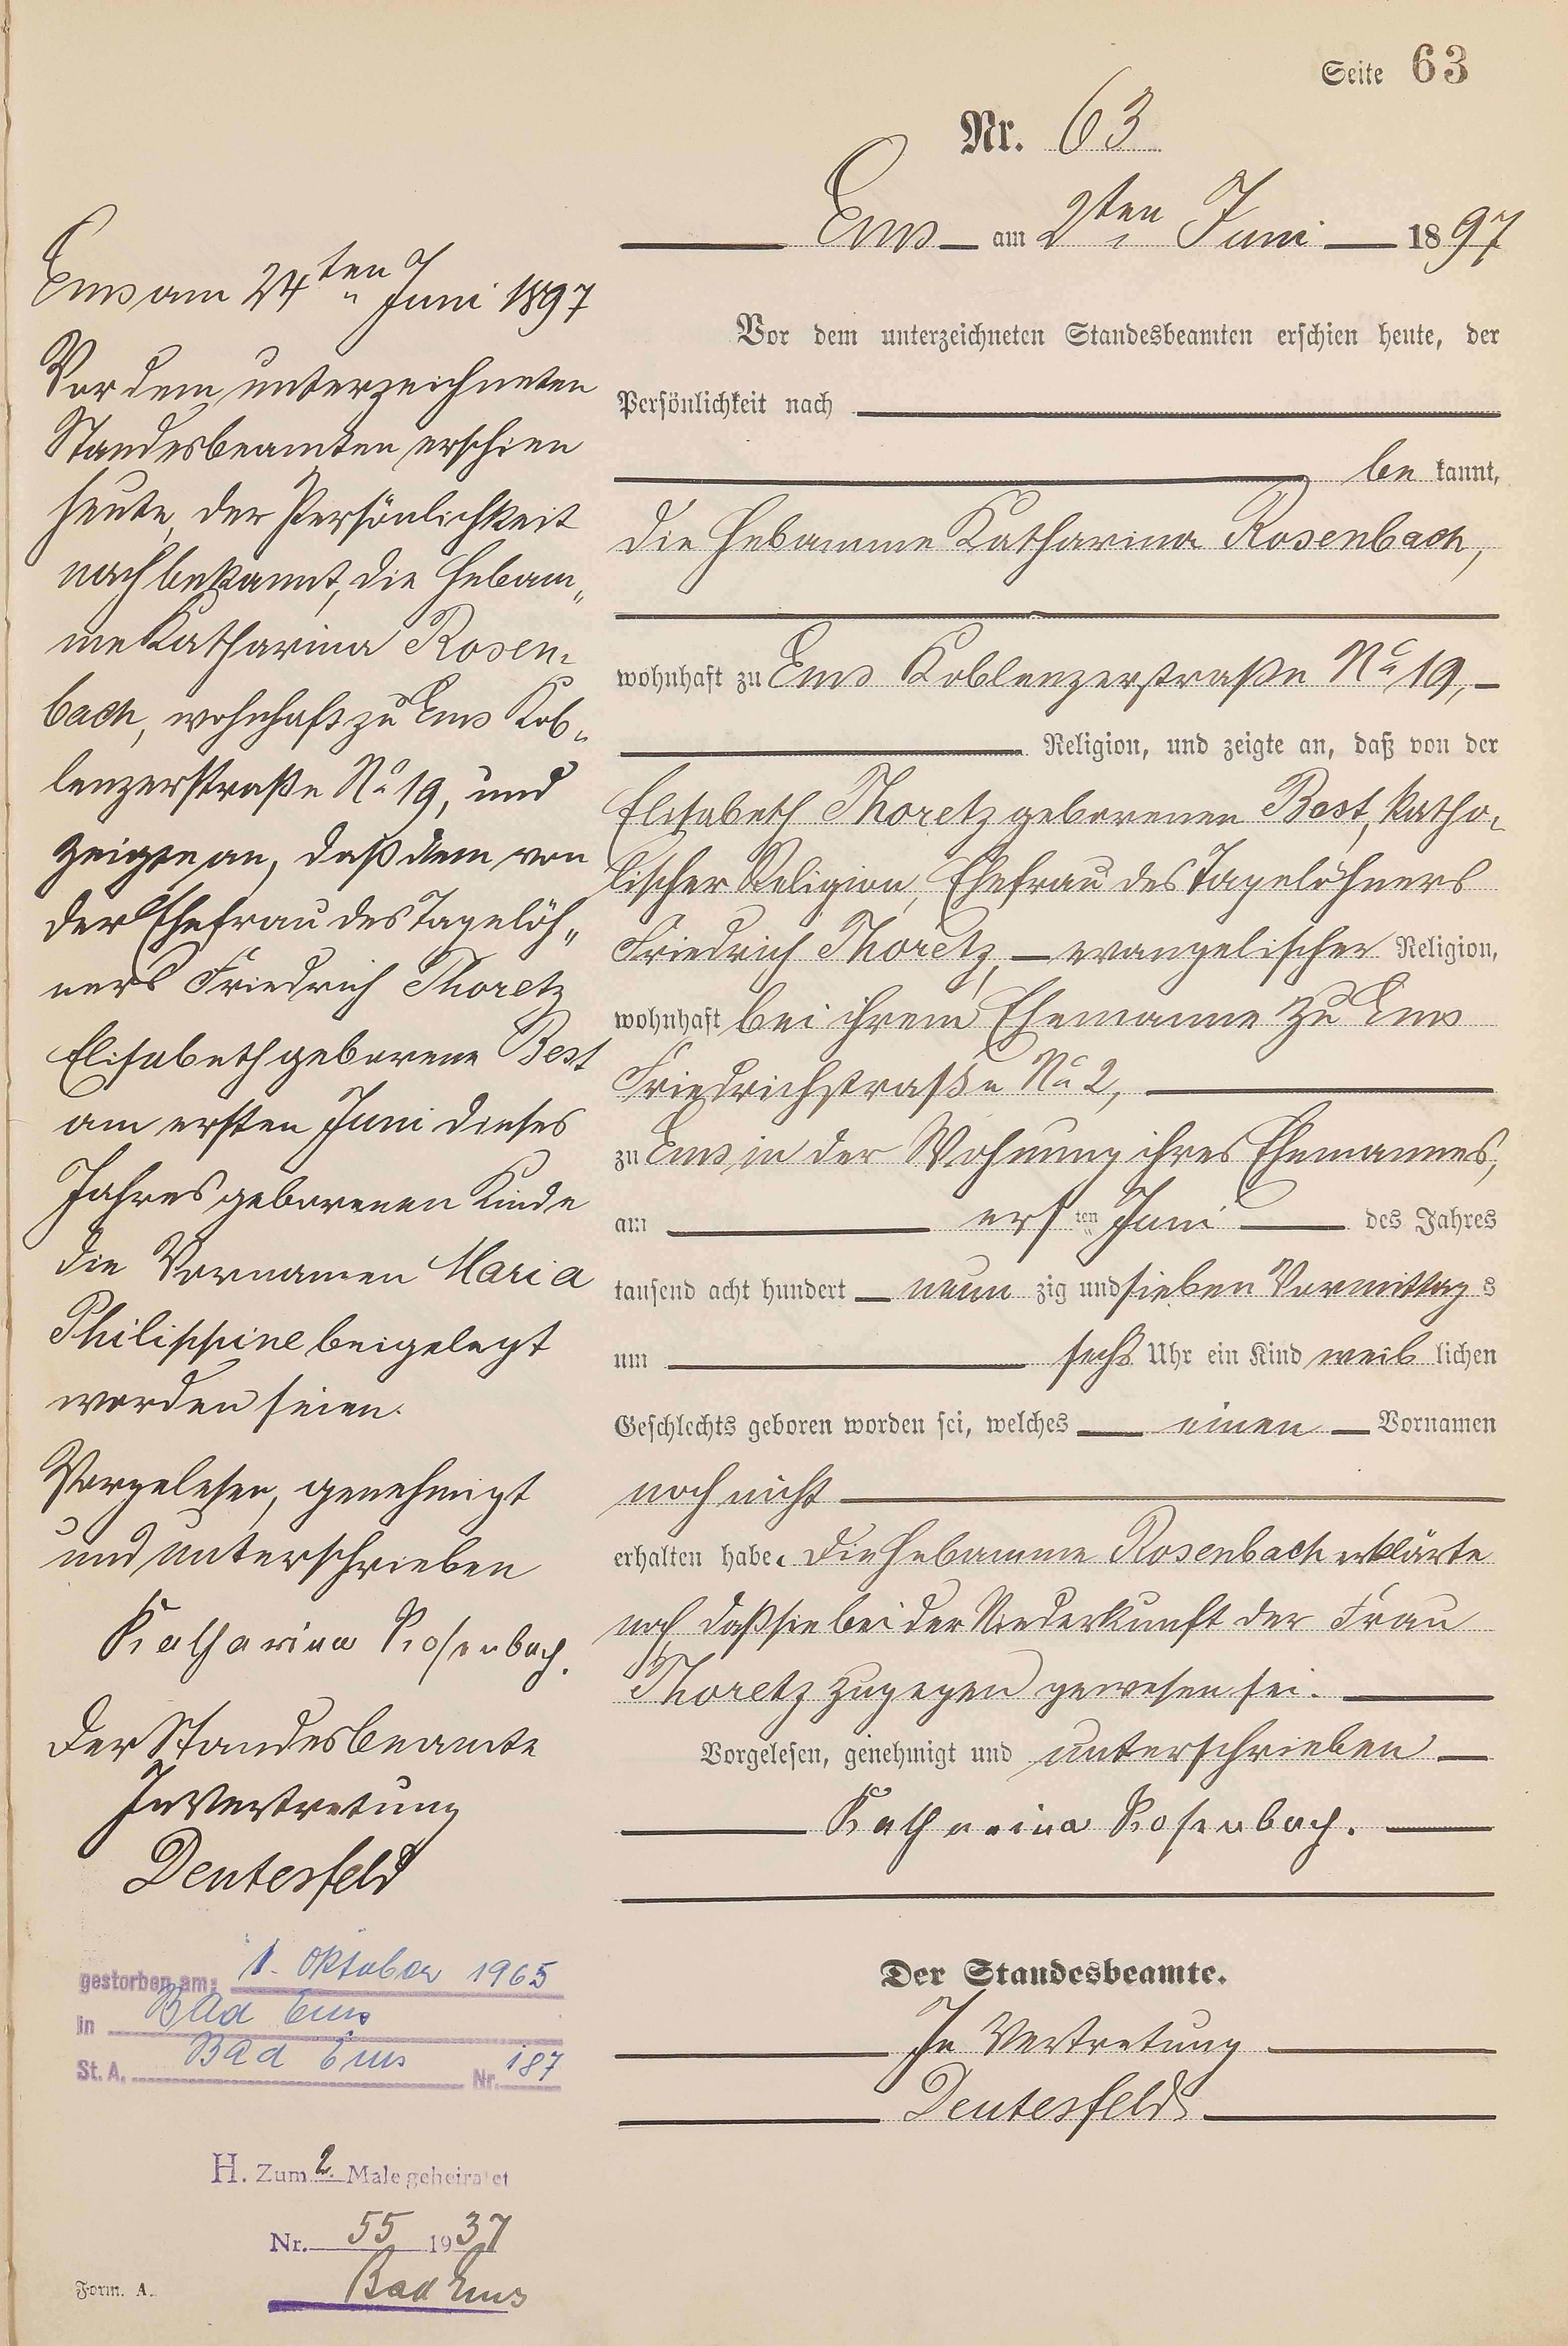 Seite 63
Nr. 63
Ems am 2ten Juni 1897
Vor dem unterzeichneten Standesbeamten erschien heute, der
Persönlichkeit nach
be kannt,
die Hebamme Katharina Rosenbach,
wohnhaft zu Ems Koblenzerstraße No 19,
Religion, und zeigte an, daß von der
Elisabeth Thoretz geborenen Best, katho-
lischer Religion, Ehefrau des Tagelöhners
Friedrich Thoretz, evangelischer Religion,
wohnhaft bei ihrem Ehemanne zu Ems
Friedrichstraße No 2,
zu Ems in der Wohnung ihres Ehemannes,
am ersten Juni des Jahres
tausend acht hundert neun zig und sieben Vormittag s
um sechs Uhr ein Kind weib lichen
Geschlechts geboren worden sei, welches einen Vornamen
noch nicht
erhalten habe. Die Hebamme Rosenbach erklärte
noch, daß sie bei der Niederkunft der Frau
Thoretz zugegen gewesen sei.
Vorgelesen, genehmigt und unterschrieben
Katharina Rosenbach.
Der Standesbeamte.
In Vertretung
Deutesfeld
Ems am 24ten Juni 1897
Vor dem unterzeichneten
Standesbeamten erschien
heute, der Persönlichkeit
nach bekannt, die Hebam-
me Katharina Rosen-
bach, wohnhaft zu Ems Kob-
lenzerstraße No 19, und
zeigte an, daß dem von
der Ehefrau des Tagelöh-
ners Friedrich Thoretz
Elisabeth geborene Best
am ersten Juni dieses
Jahres geborenen Kinde
die Vornamen Maria
Philippine beigelegt
worden seien.
Vorgelesen, genehmigt
und unterschrieben
Katharina Rosenbach.
Der Standesbeamte
In Vertretung
Deutesfeld
gestorben am: 1. Oktober 1965
in Bad Ems
St. A. Bad Ems Nr. 187
H. Zum 2. Male geheiratet
Nr. 55 1937
Bad Ems
Form. A.